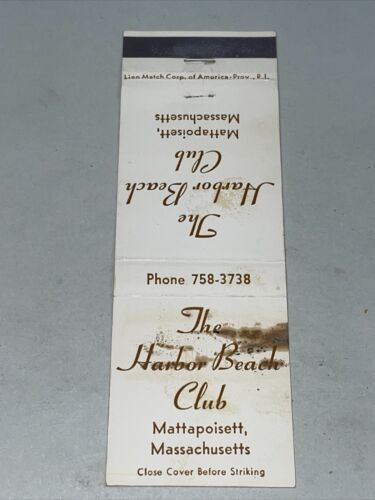 Lion Match Corp. of America-Prov., R.I.
The
Harbor Beach
Club
Mattapoisett,
Massachusetts
Phone 758-3738
The
Harbor Beach
Club
Mattapoisett,
Massachusetts
Close Cover Before Striking